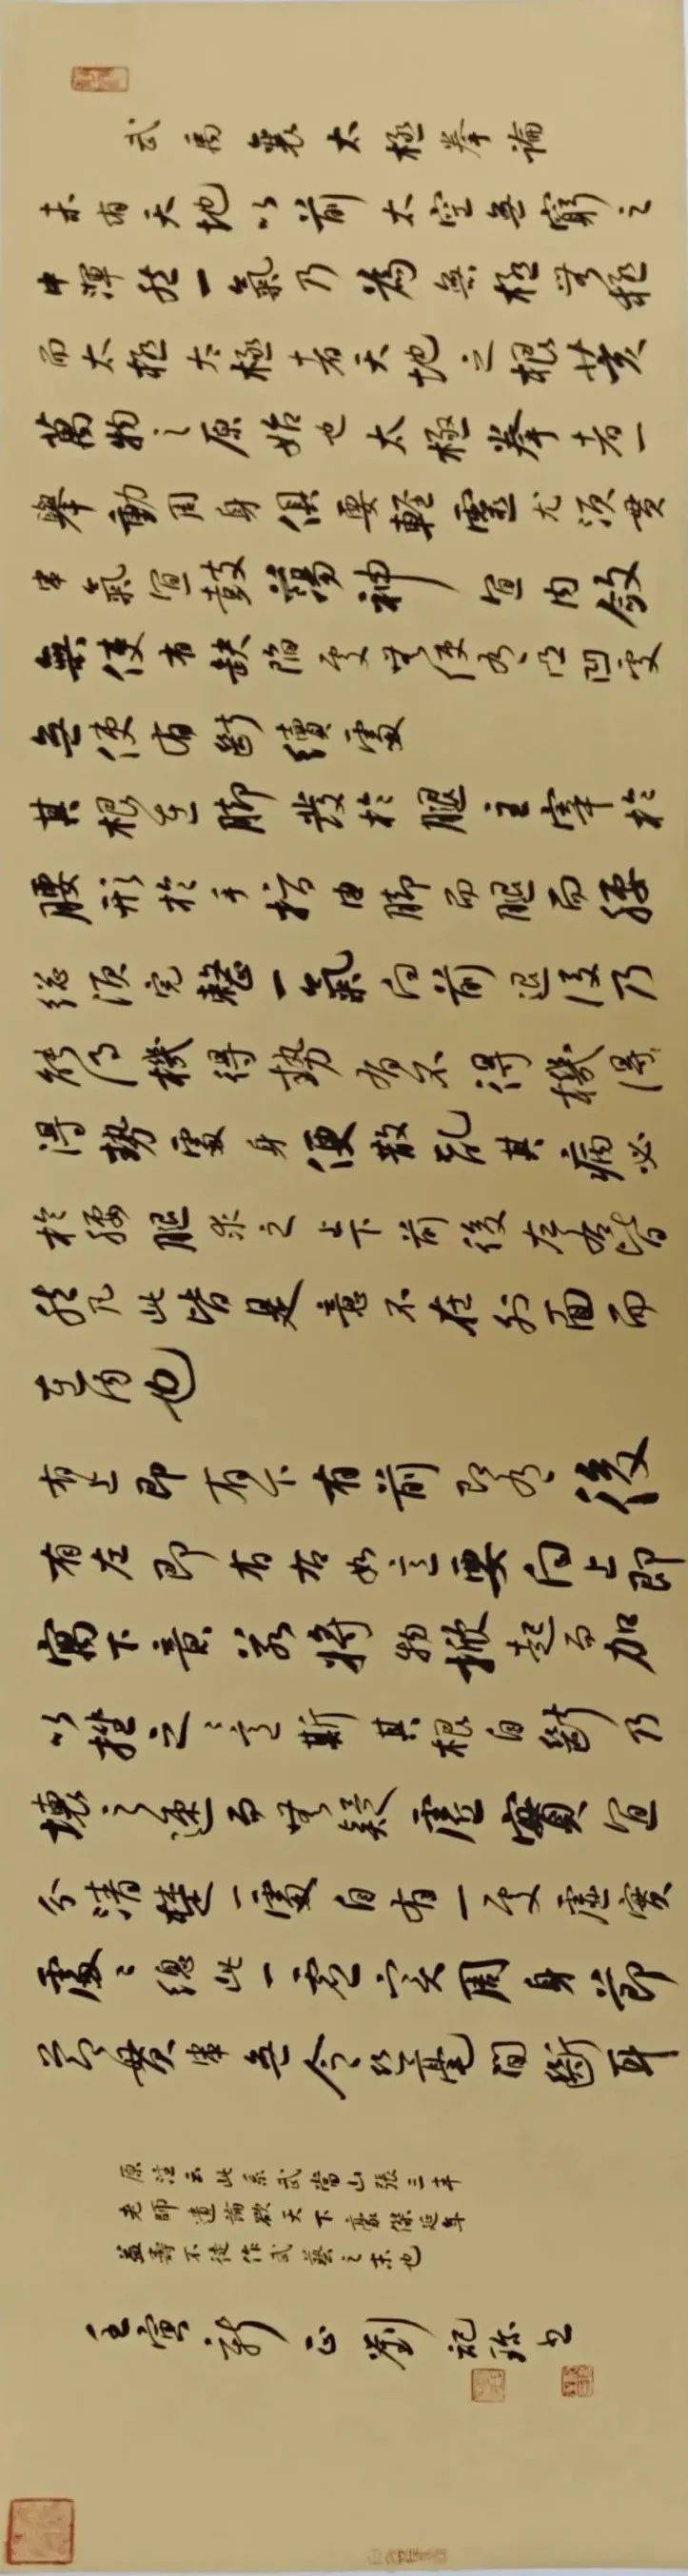 武禹襄太極拳論
未有天地以前太空無窮之
中渾然一氣乃為無極無極
而太極太極者天地之根荄
萬物之原始也太極拳者一
舉動周身俱要輕靈尤須貫
串氣宜鼓盪神宜內斂
無使有缺陷處無使有凸凹處
無使有斷續處
其根在腳發於腿主宰於
腰形於手指由腳而腿而腰
總須完整一氣向前退後乃
能得機得勢有不得機得
得勢處身便散亂其病必
於腰腿求之上下前後左右皆
然凡此皆是意不在外面而
在內也
有上即有下有前即有後
有左即有右如意要向上即
寓下意若將物掀起而加
以挫之之意斯其根自斷乃
壞之速而無疑虛實宜
分清楚一處自有一處虛實
處處總此一虛實周身節
節貫串無令絲毫間斷耳
原注云此系武當山張三丰
老師遺論欲天下豪傑延年
益壽不徒作武藝之末也
壬寅新正劉記珍書